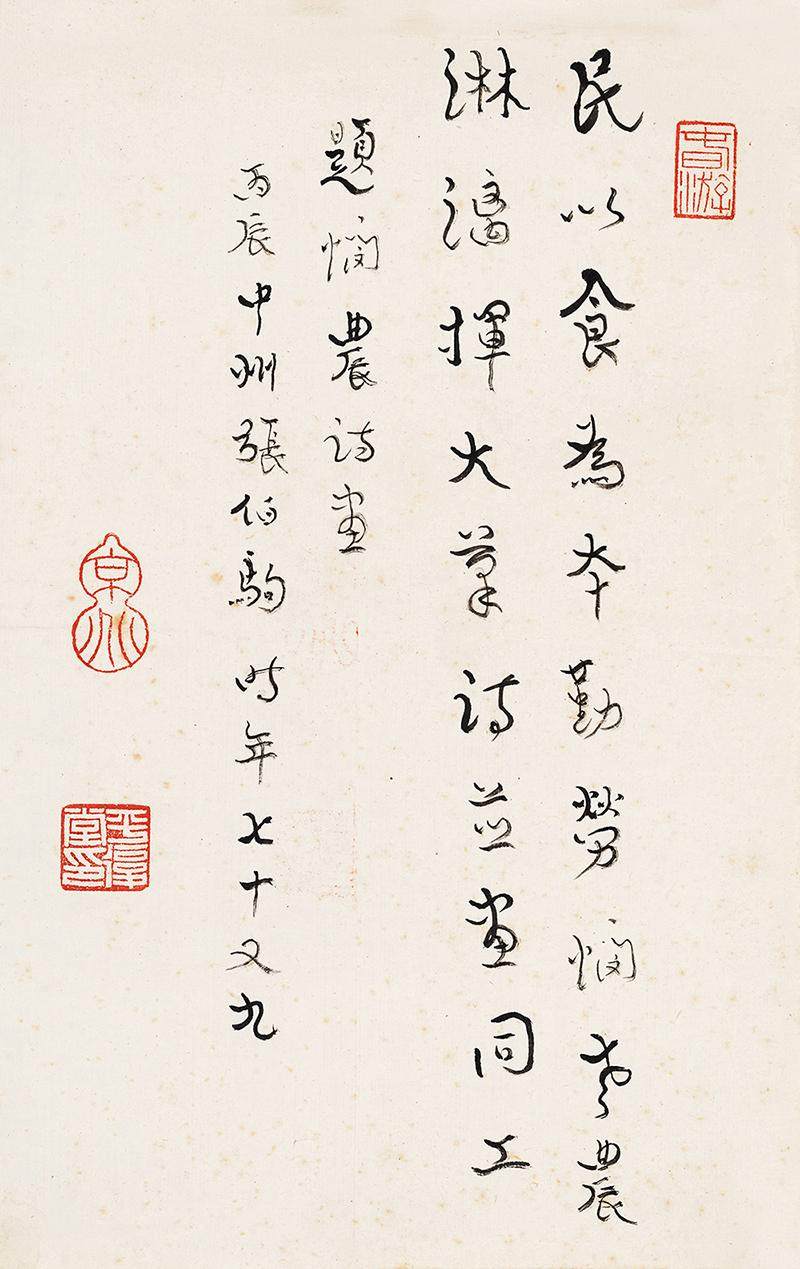 民以食為本勤勞憫老農
淋漓揮大筆詩並畫同工
題憫農詩畫
丙辰中州張伯駒時年七十又九
京兆
平復堂印